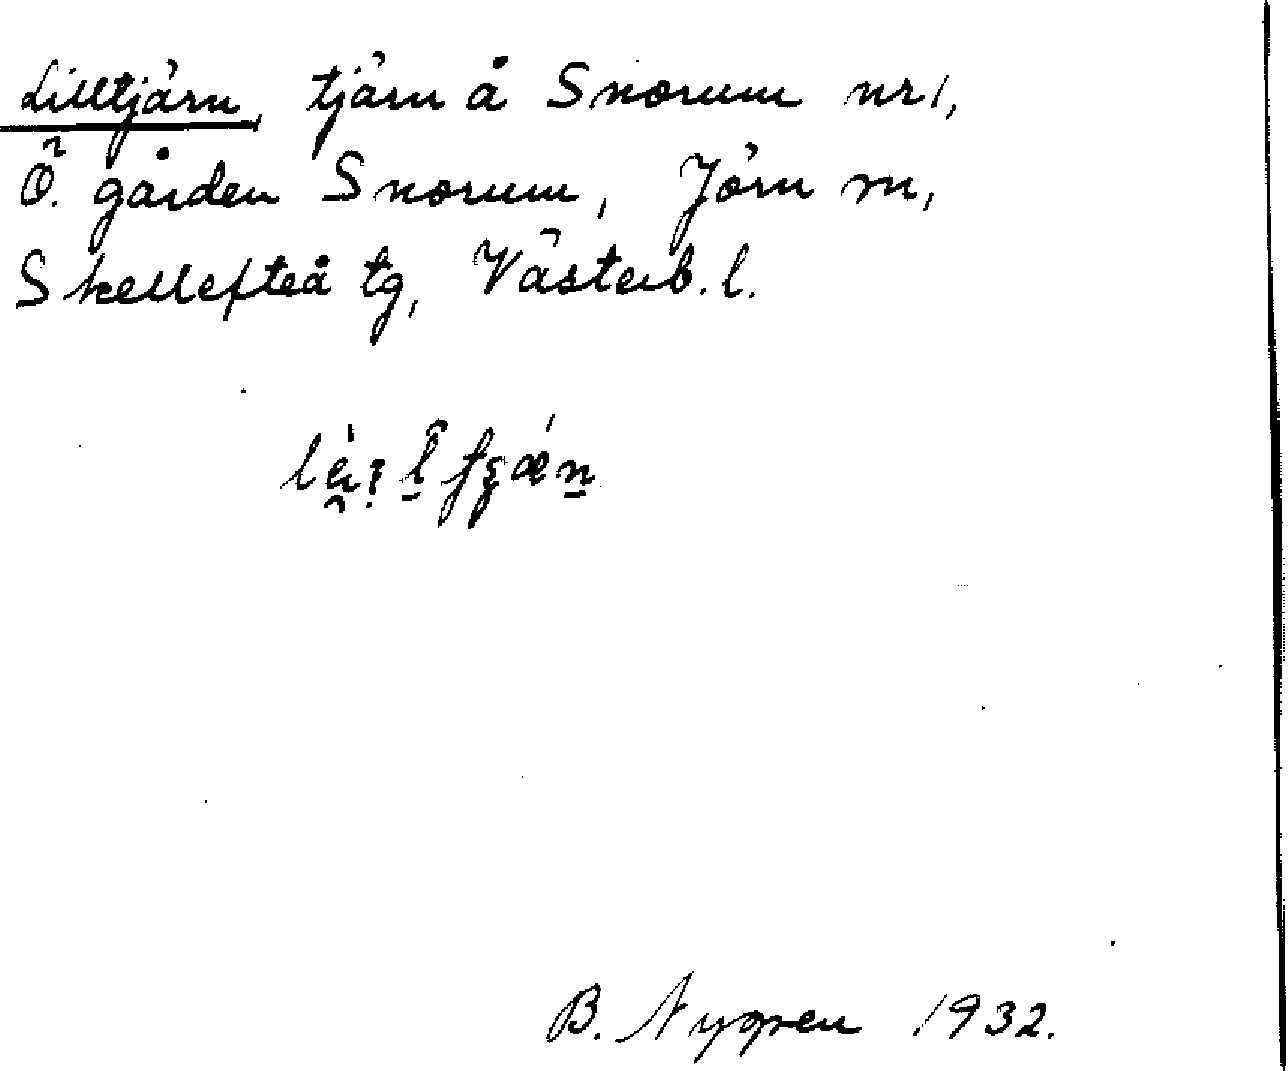 Lilltjärn, tjärn å Snorum nr 1,
Ö. gården Snorum, Jörn sn,
Skellefteå tg, Västerb. l.
B. Nygren 1932.